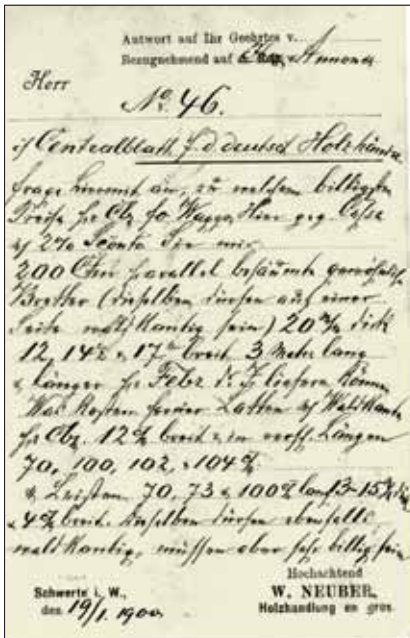 Antwort auf Ihr Geehrtes v.
Bezugnehmend auf Ihre Annonce
Herr
No. 46.
Centralblatt f. d. deutsch. Holzhandel
frage hiermit an, zu welchem billigsten
Preise per Cbm fo. Waggon Hier geg. Cassa
2% Sconto Sie mir
200 Cbm parallel besäumte
Bretter (dieselben dürfen auf einer
Seite waldkantig sein) 20 m/m dick
12, 14 & 17 breit 3 Meter lang
& länger per Febr. d. J. liefern können
Was kosten ferner Latten Waldkante
per Cbm. 12 breit & in versch. Längen
70, 100, 102, & 104
& Leisten 70, 73 & 100 lang 13-15
& 4 breit. dieselben dürfen ebenfalls
waldkantig, müssen aber sehr billig sein
Hochachtend
Schwerte i. W.,
W. NEUBER,
den 19/1. 1900.
Holzhandlung en gros.